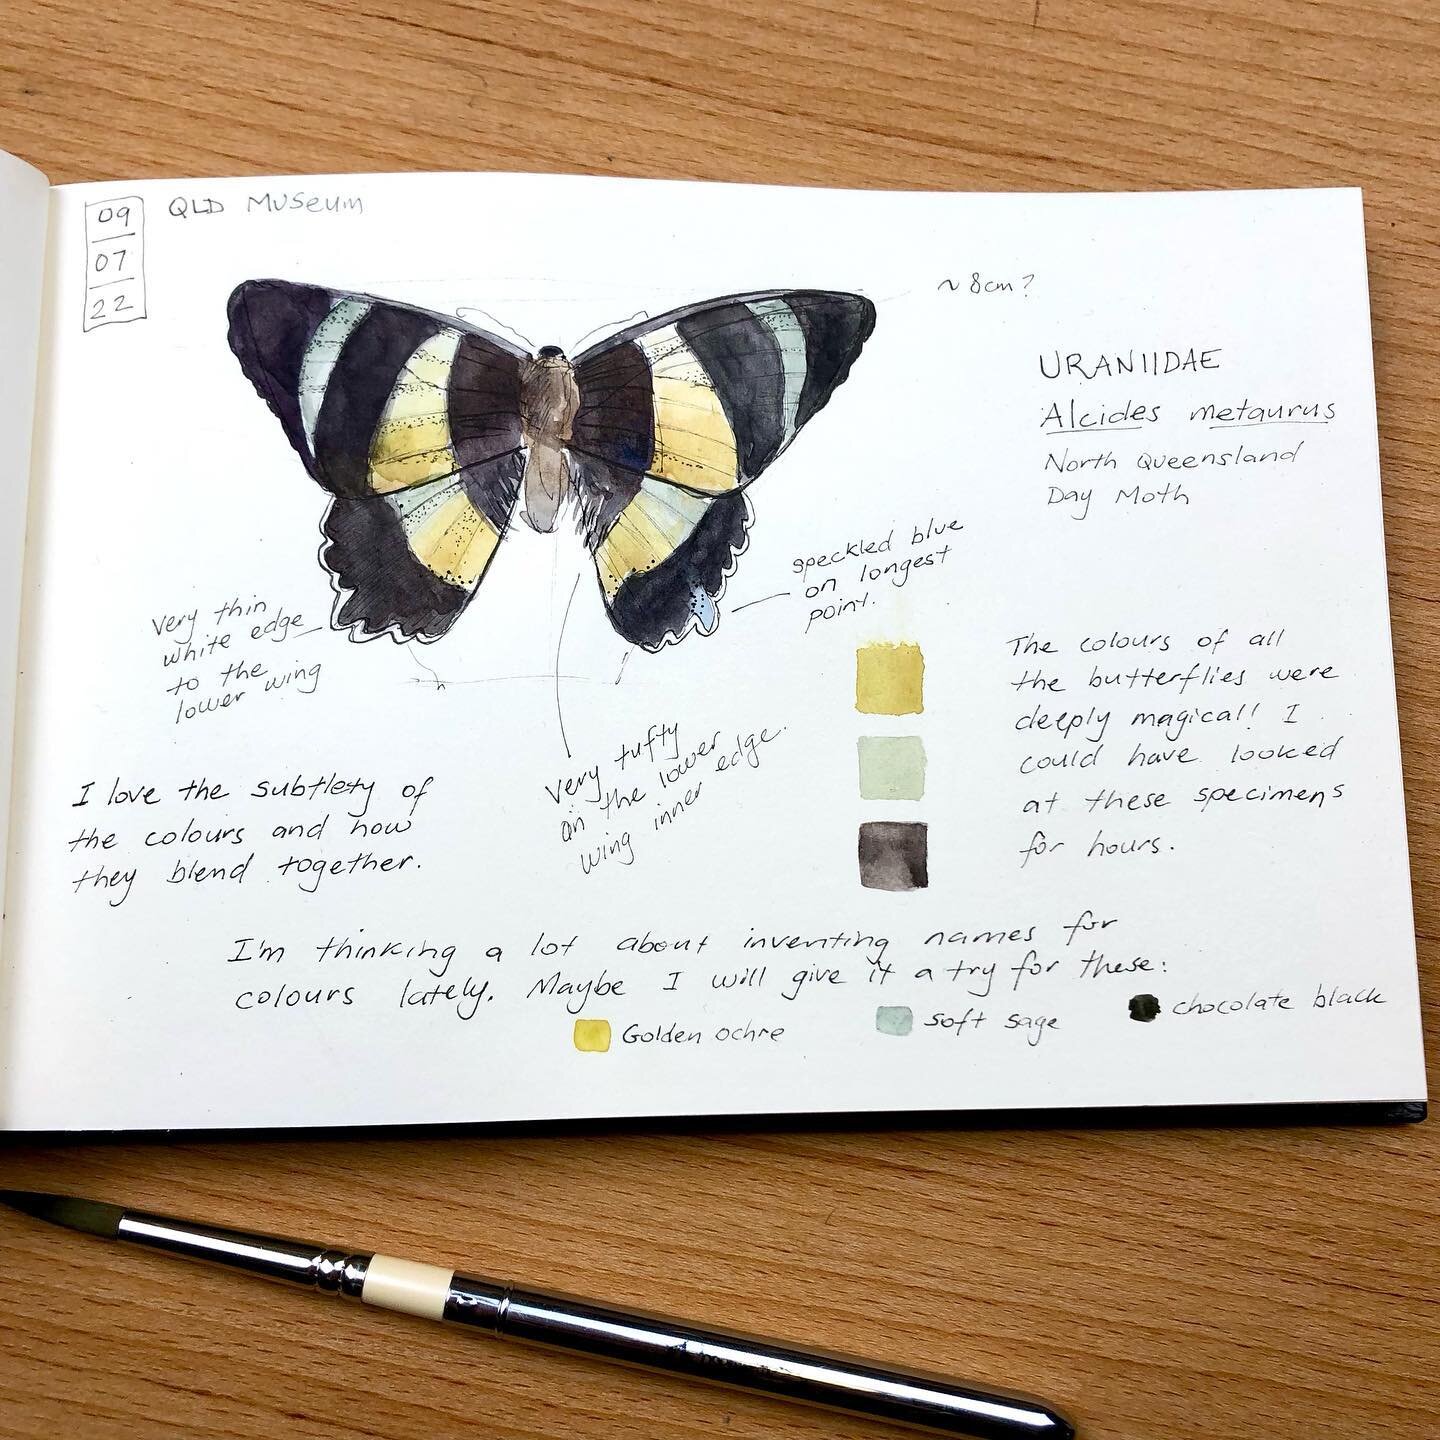 09
07
22
QLD Museum
~8cm?
URANIIDAE
Alcides metaurus
North Queensland
Day Moth
speckled blue
on longest
point.
Very thin
white edge
to the
lower wing
The colours of all
the butterflies were
deeply magical! I
could have looked
at these specimens
for hours.
Very tufty
on the lower
wing inner edge.
I love the subtlety of
the colours and how
they blend together.
I'm thinking a lot about inventing names for
colours lately. Maybe I will give it a try for these:
Golden ochre
soft sage
chocolate black